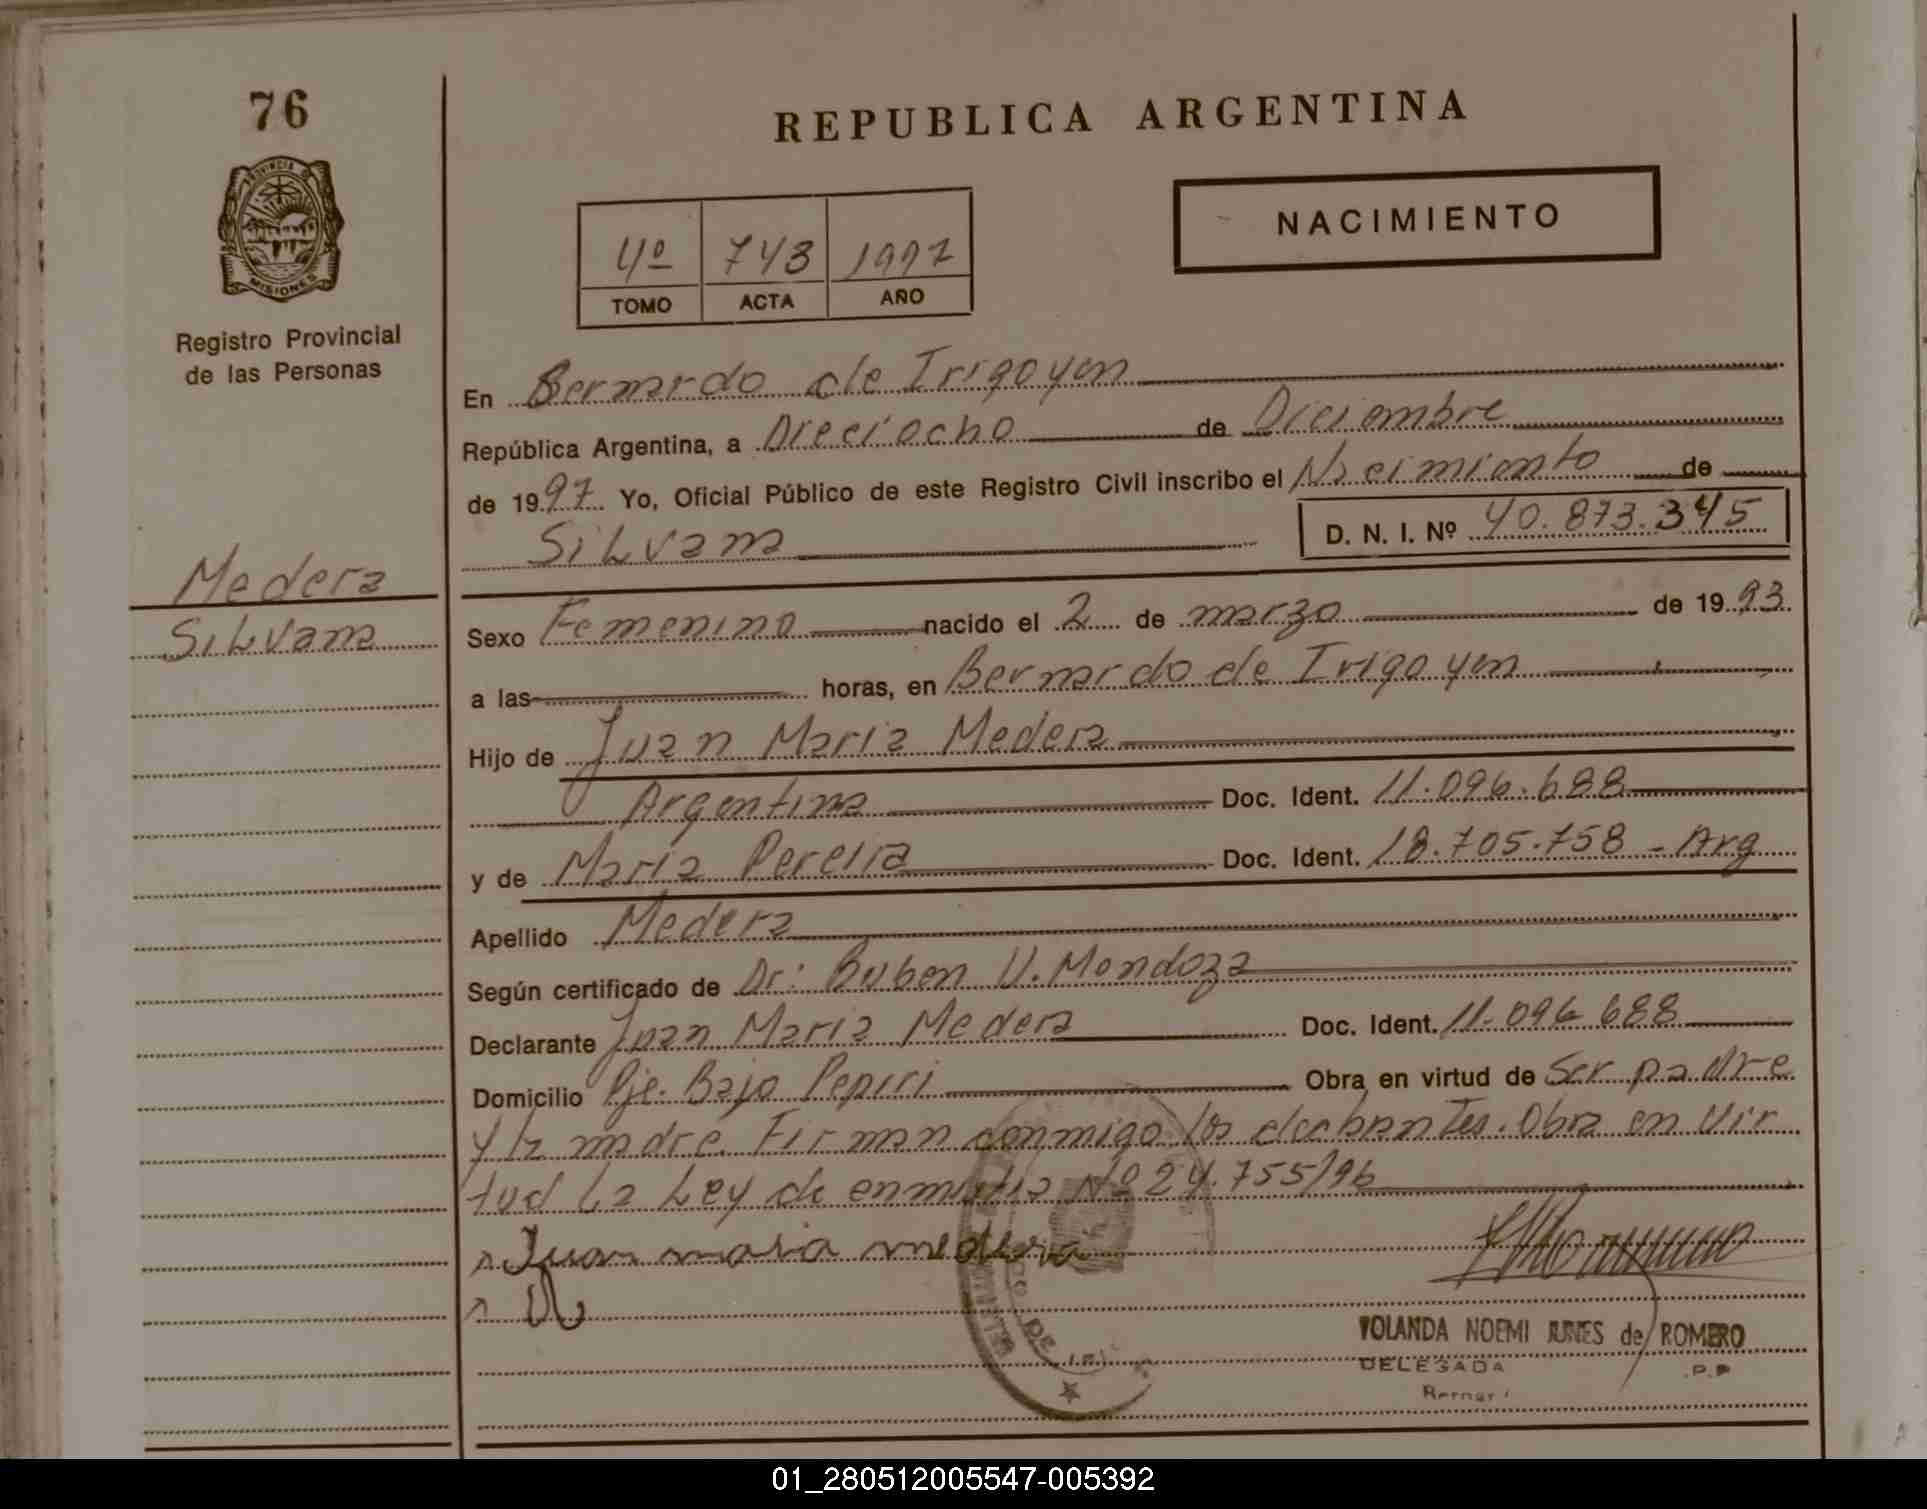 76
REPUBLICA ARGENTINA
PROVINCIA DE
MISIONES
Registro Provincial
de las Personas
NACIMIENTO
4º 743 1997
TOMO ACTA AÑO
En Bernardo de Irigoyen
República Argentina, a Dieciocho de Diciembre
de 1997 Yo, Oficial Público de este Registro Civil inscribo el Nacimiento de
Silvana D. N. I. Nº 40.873.345
Medera
Silvana
Sexo Femenino nacido el 2 de marzo de 1993
a las horas, en Bernardo de Irigoyen
Hijo de Juan Maria Medera
Argentina Doc. Ident. 11.096.688
y de Maria Pereira Doc. Ident. 18.705.758 - Arg
Apellido Medera
Según certificado de Dr: Ruben U. Mendoza
Declarante Juan Maria Medera Doc. Ident. 11.096.688
Domicilio Pje. Bajo Pepiri Obra en virtud de Ser padre
y la madre. Firman conmigo los declarantes. Obra en Vir
tud La Ley de Nº 24.755/96
Juan maria medera
YOLANDA NOEMI JUNES de ROMERO
DELEGADA
01_280512005547-005392